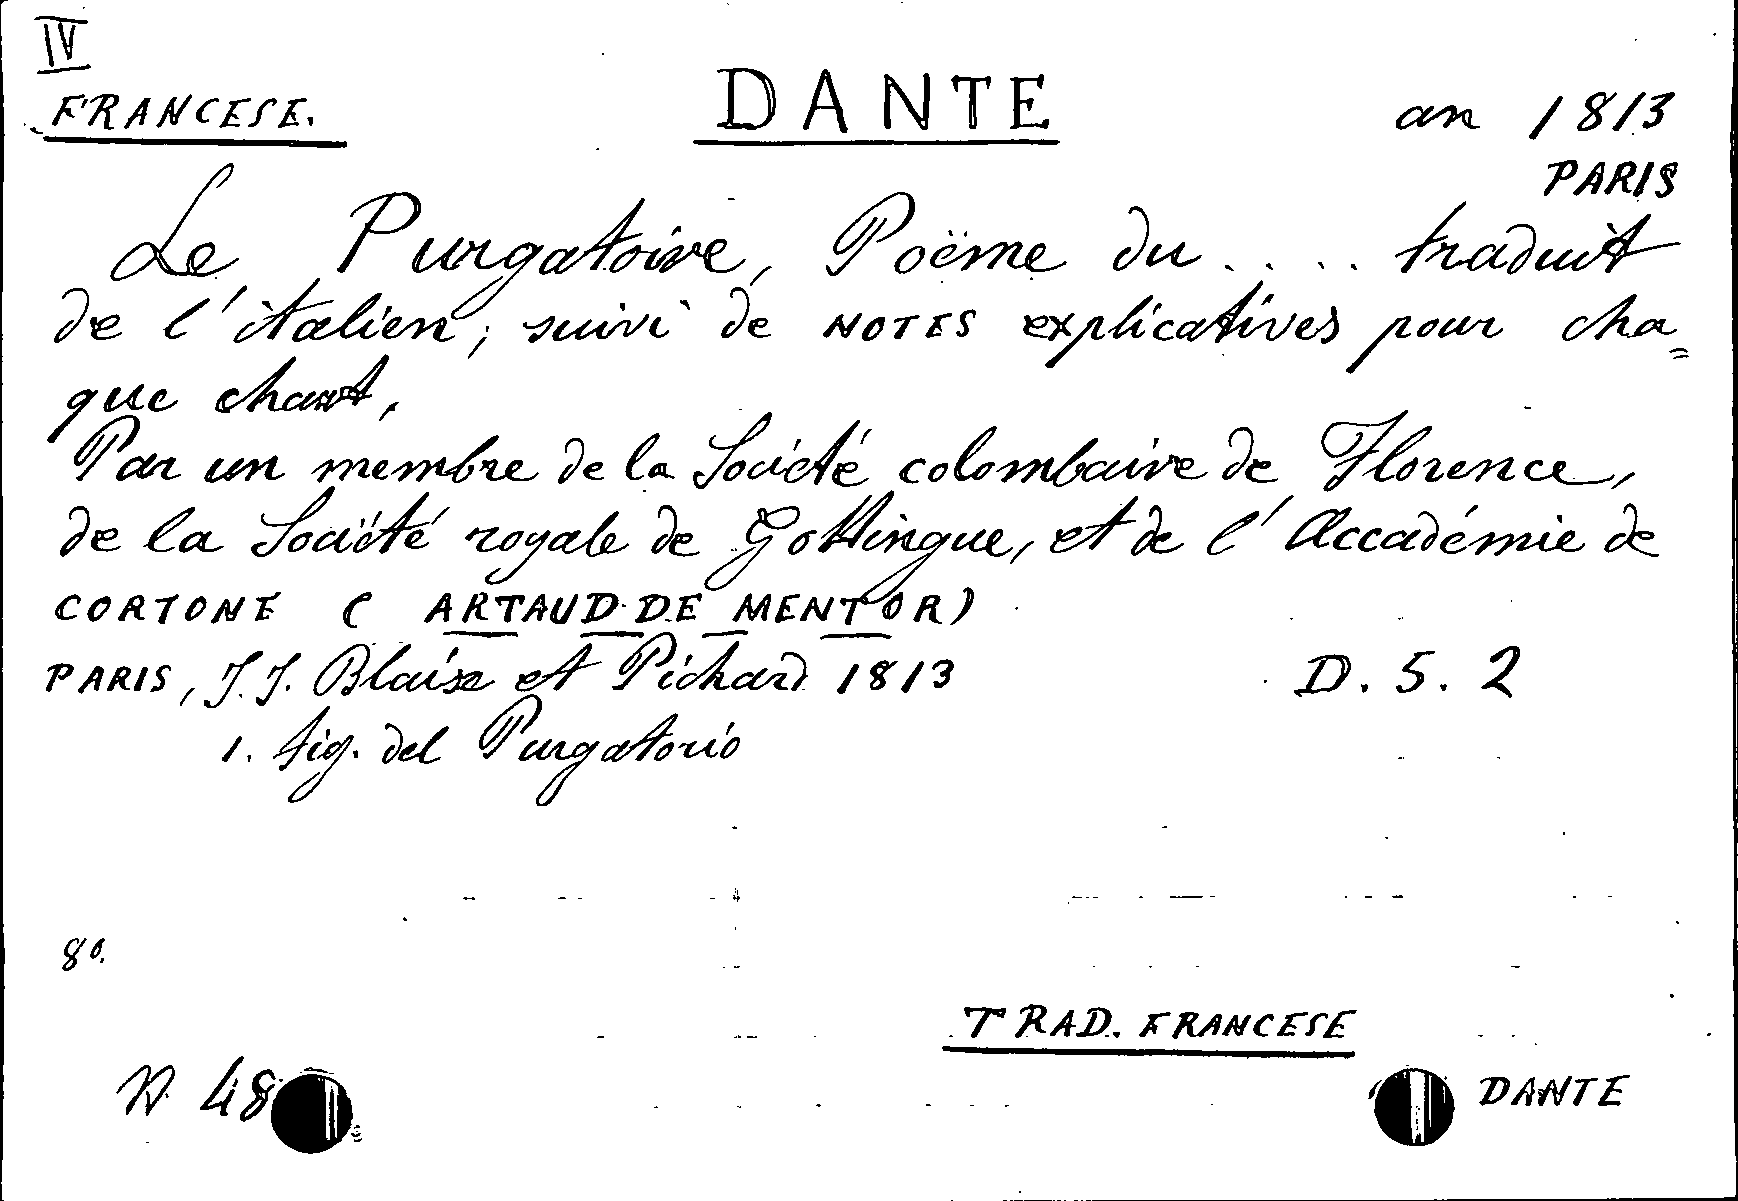 IV
FRANCESE. DANTE an 1813
PARIS
Le Purgatoire, Poëme du .... traduit
de l'italien; suivi de NOTES explicatives pour cha=
que chant,
Par un membre de la Société colombaire de Florence,
de la Société royale de Gottingue, et de l'Accadémie de
CORTONE (ARTAUD DE MENTOR)
PARIS, J.J. Blaise et Pichard 1813 D. 5. 2
1. fig. del Purgatorio
8º.
TRAD. FRANCESE
N 48 DANTE